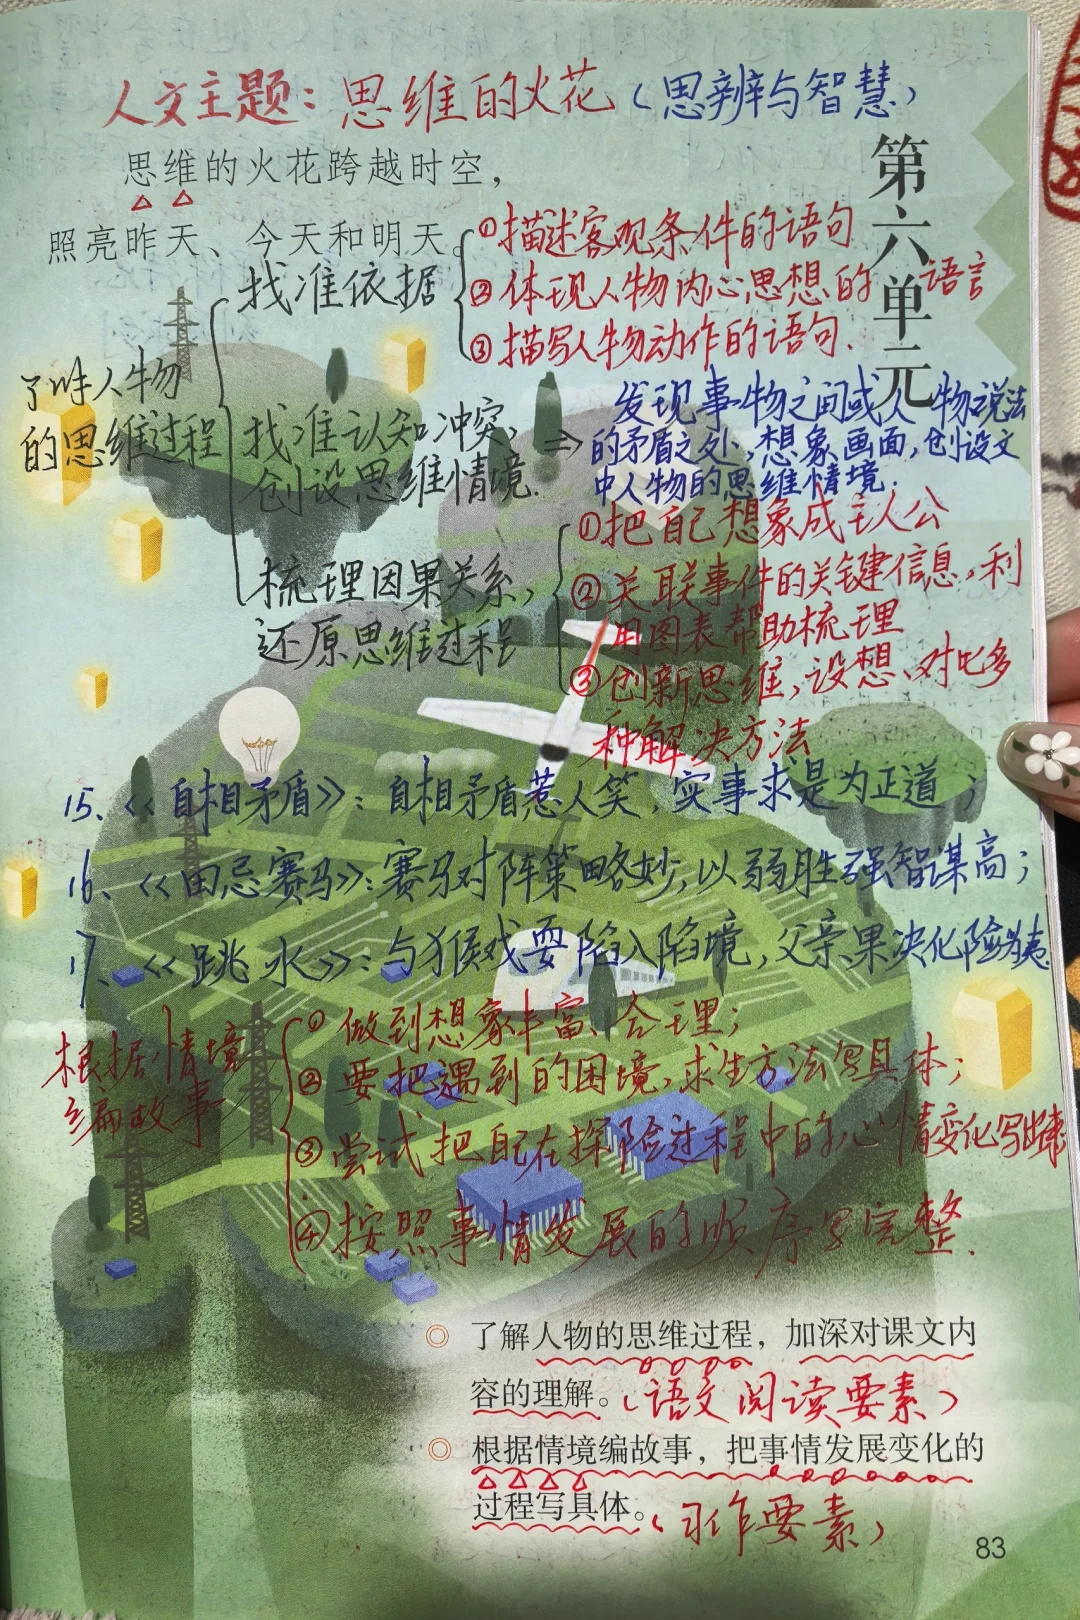 人文主题：思维的火花（思辨与智慧）
第六单元
思维的火花跨越时空，
照亮昨天、今天和明天。
了解人物
的思维过程
找准依据
①描述客观条件的语句
②体现人物内心思想的语言
③描写人物动作的语句.
找准认知冲突，
创设思维情境.
⇒发现事物之间或人物说法
的矛盾之处，想象画面，创设文
中人物的思维情境.
梳理因果关系，
还原思维过程
①把自己想象成主人公
②关联事件的关键信息，利
用图表帮助梳理
③创新思维，设想、对比多
种解决方法
15、《自相矛盾》：自相矛盾惹人笑，实事求是为正道；
16、《田忌赛马》：赛马对阵策略妙，以弱胜强智谋高；
17、《跳水》：与猴戏耍陷入陷境，父亲果决化险为夷
根据情境
编故事
①做到想象丰富、合理；
②要把遇到的困境，求生方法写具体；
③尝试把自己在探险过程中的心情变化写出来
④按照事情发展的顺序写完整.
◎ 了解人物的思维过程，加深对课文内
容的理解。（语文阅读要素）
◎ 根据情境编故事，把事情发展变化的
过程写具体。（习作要素）
83